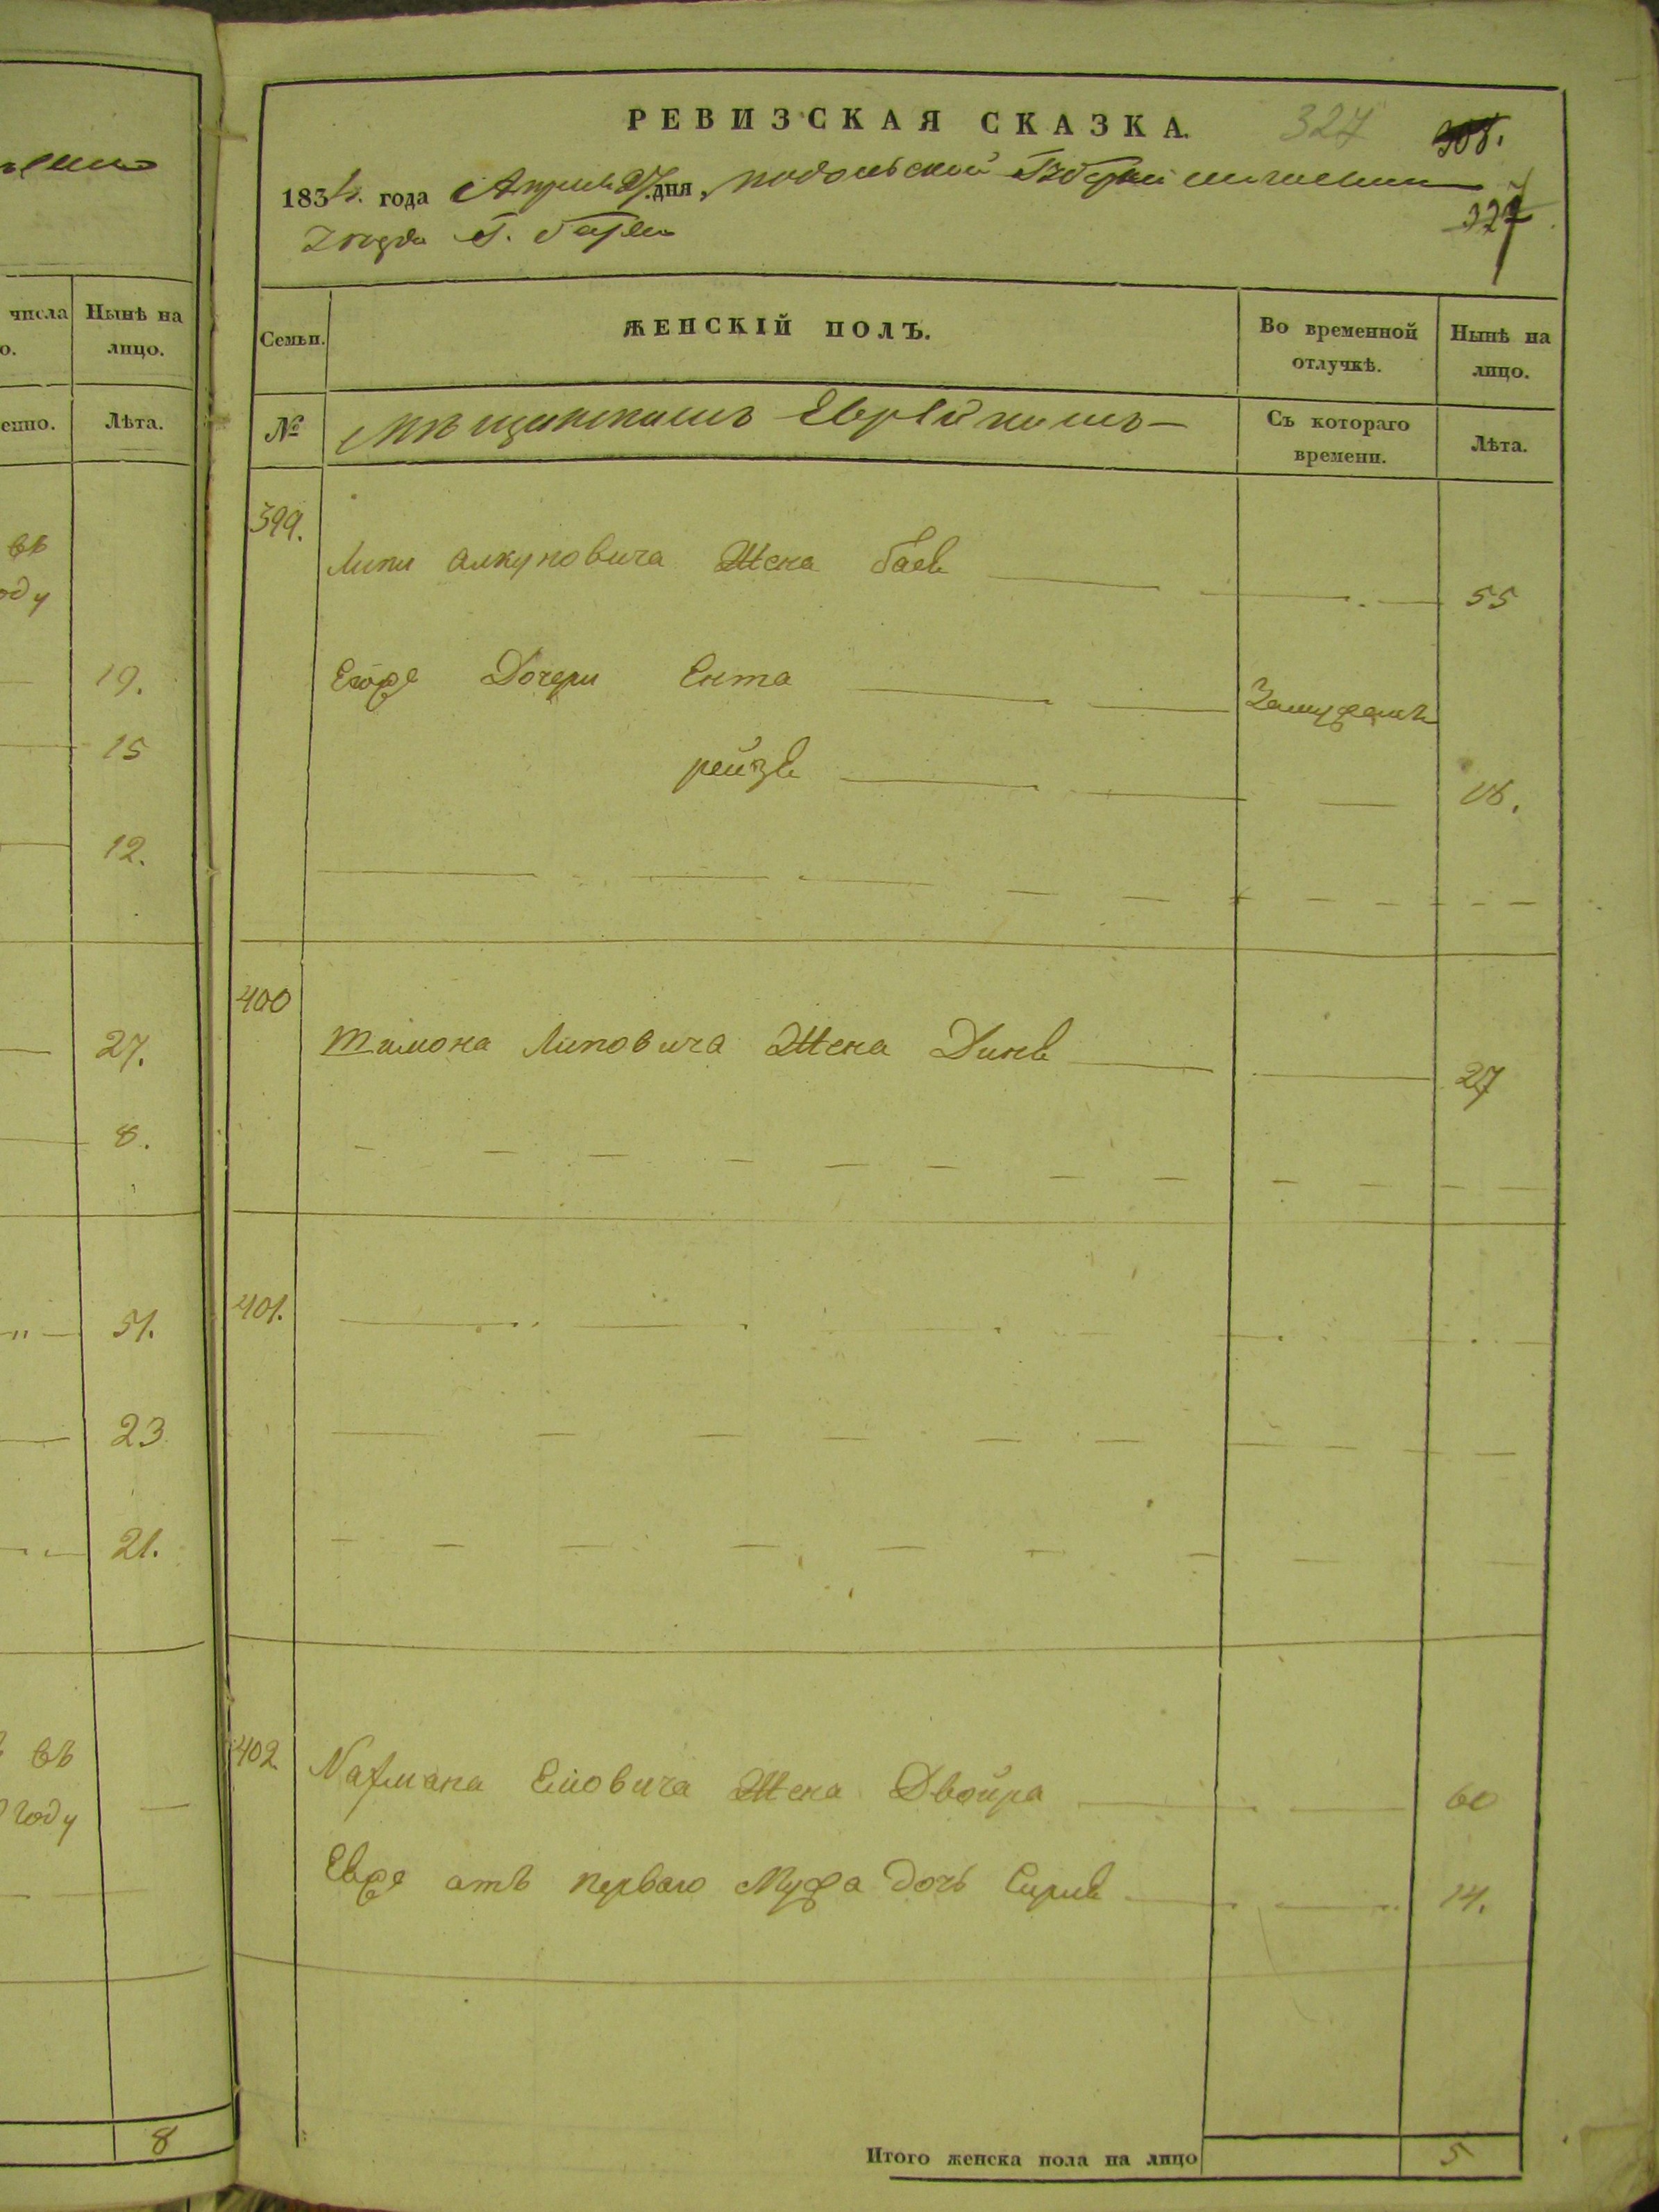 числа
о.
Нынѣ на
лицо.
енно.
Лѣта.
въ
оду
19.
15
12.
27.
8.
51.
23
21.
въ
году
8
РЕВИЗСКАЯ СКАЗКА.
327
305.
1834. года Апреля 27 дня, подольской Губерніи
327
уезда Г.
Семьи.
ЖЕНСКІЙ ПОЛЪ.
Во временной
отлучкѣ.
Нынѣ на
лицо.
№
Мещанкамъ Еврейкамъ
Съ котораго
времени.
Лѣта.
399.
Липи Жена бася 55
Егоже Дочери Ента Замужемъ
рейзя 18.
400
Шимона Липовича Жена Диня 27
401.
402
Нахмана Жена Двойра 60
Еяже отъ перваго Мужа дочь 14.
Итого женска пола на лицо 5